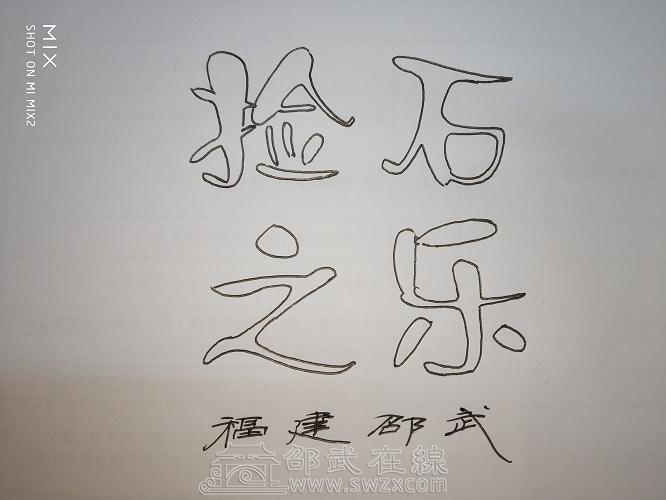 捡石
之乐
福建邵武
邵武在線
www.swzx.com
MIX
SHOT ON MI MIX2